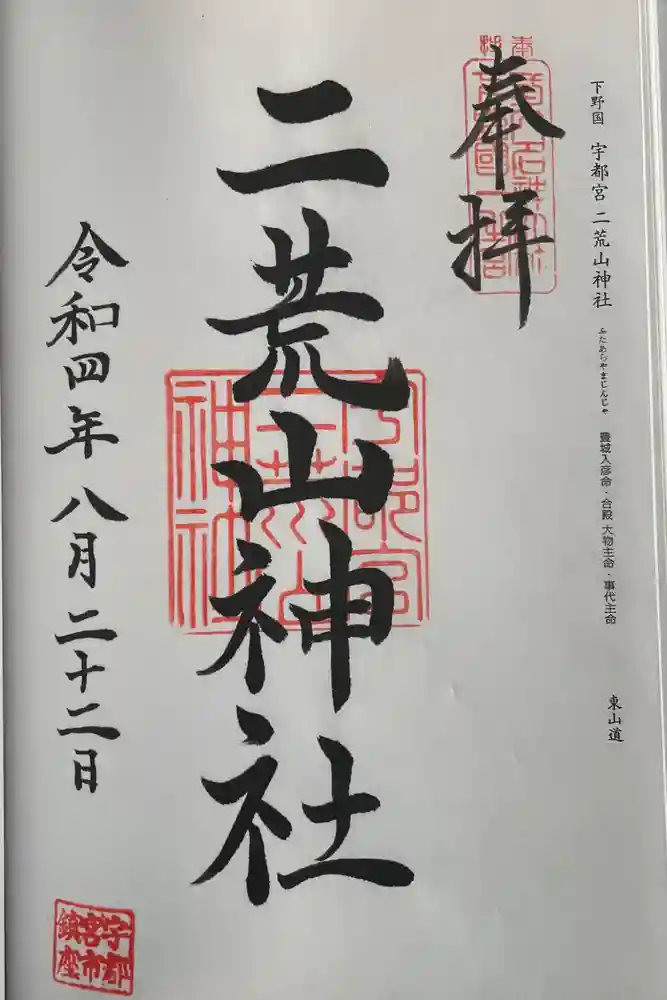 下野国 宇都宮 二荒山神社 ふたあらやまじんじゃ 豊城入彦命・合殿 大物主命・事代主命 東山道
奉拝
二荒山神社
令和四年 八月二十二日
宇都宮
二荒山
神社
宇都
宮市
鎮座